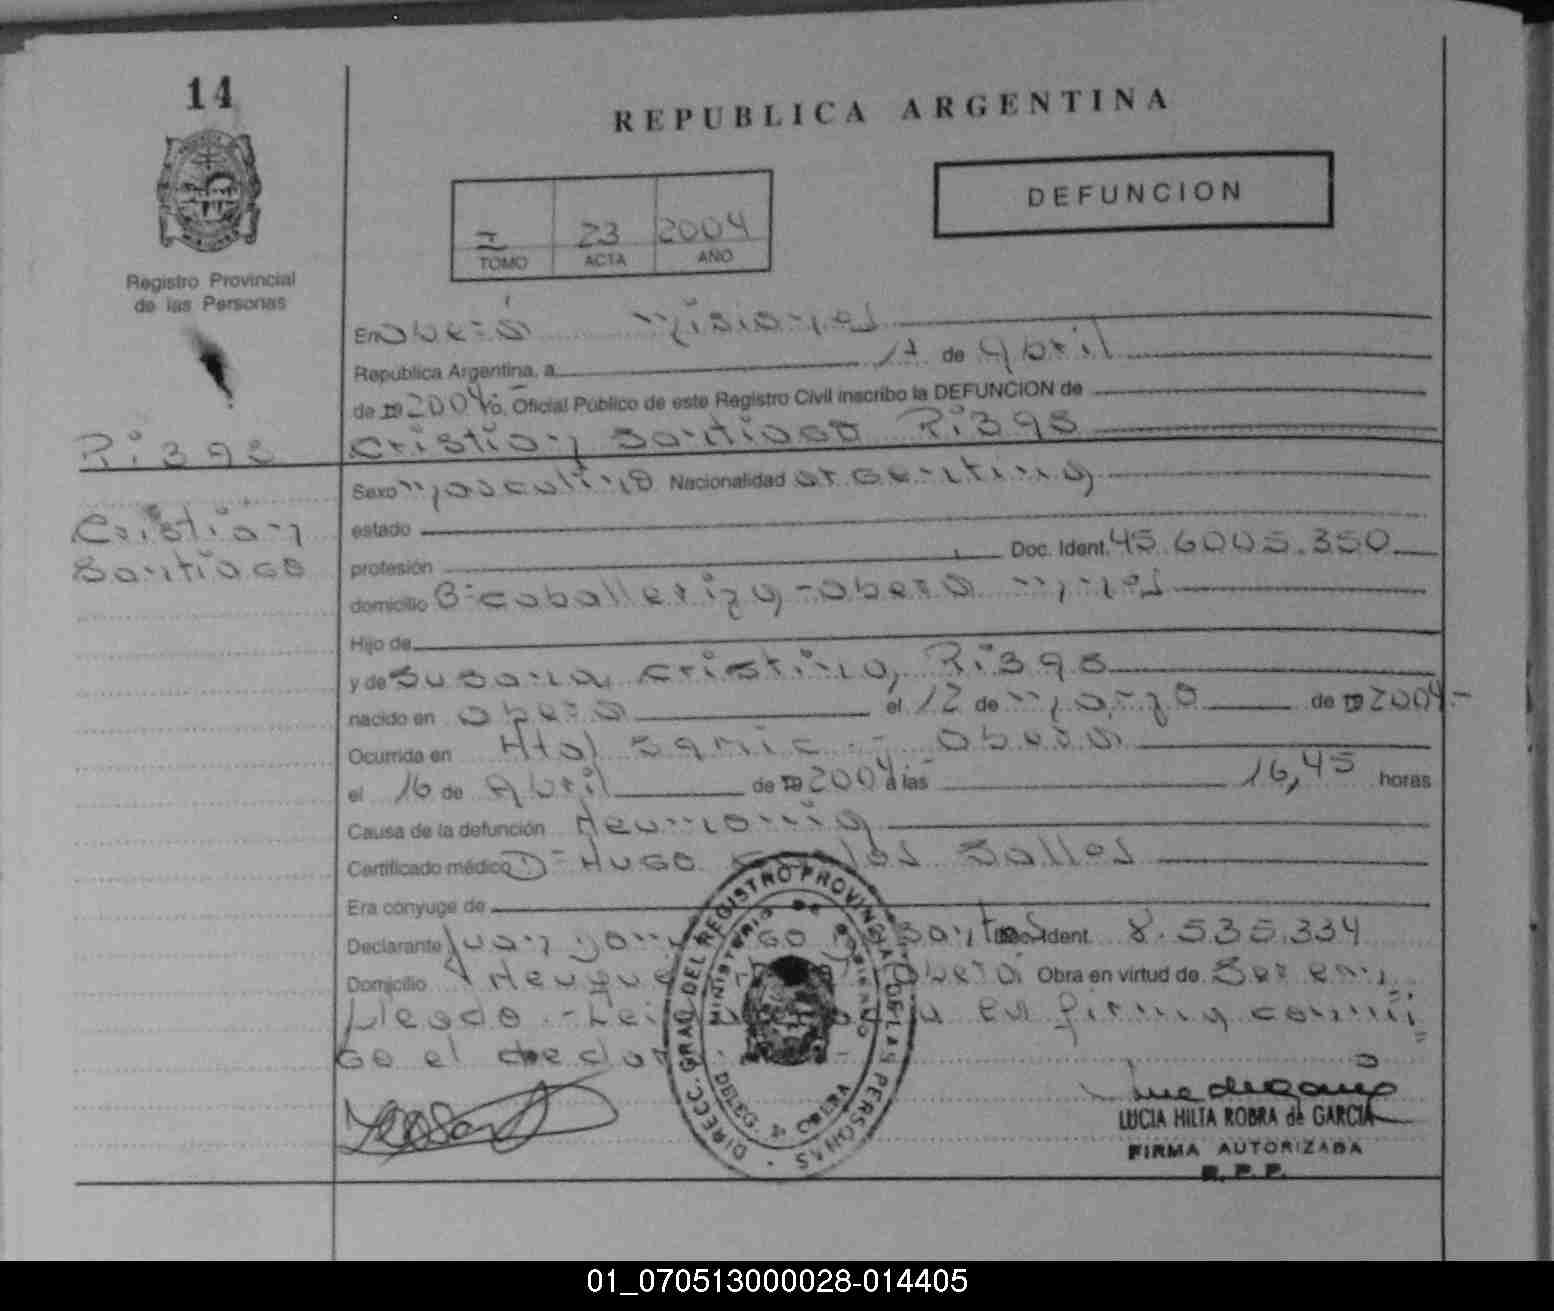 14
REPUBLICA ARGENTINA
DEFUNCION
I 23 2004
TOMO ACTA AÑO
Registro Provincial
de las Personas
En Oberá Misiones
Republica Argentina, a 17 de Abril
de 19 2004 yo, Oficial Público de este Registro Civil inscribo la DEFUNCION de
Cristian Santiago
Cristian
Santiago
Sexo masculino Nacionalidad argentina
estado
profesión Doc. Ident. 45.6005.350
domicilio Bº caballeriza - Oberá mnes
Hijo de
y de Susana Cristina
nacido en Oberá el 12 de marzo de 19 2004.-
Ocurrida en Htal Samic - Oberá
el 16 de Abril de 19 2004 a las 16,45 horas
Causa de la defunción Neumonia
Certificado médico Dr Hugo Carlos
Era conyuge de
Declarante Juan Santos Doc. Ident. 8.535.334
Domicilio Oberá Obra en virtud de Ser em
pleado.- firma conmi
go el
DIRECC. GRAL. DEL REGISTRO PROVINCIAL DE LAS PERSONAS
MINISTERIO DE GOBIERNO
DELEG. OBERA
LUCIA HILTA ROBRA de GARCIA
FIRMA AUTORIZADA
R. P. P.
01_070513000028-014405